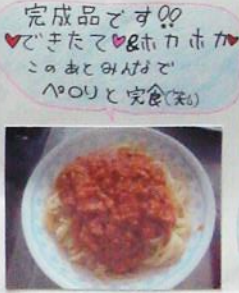 完成品です!!
♥できたて♥&ホカホカ♥
このあとみんなで
ペロリと完食(笑)